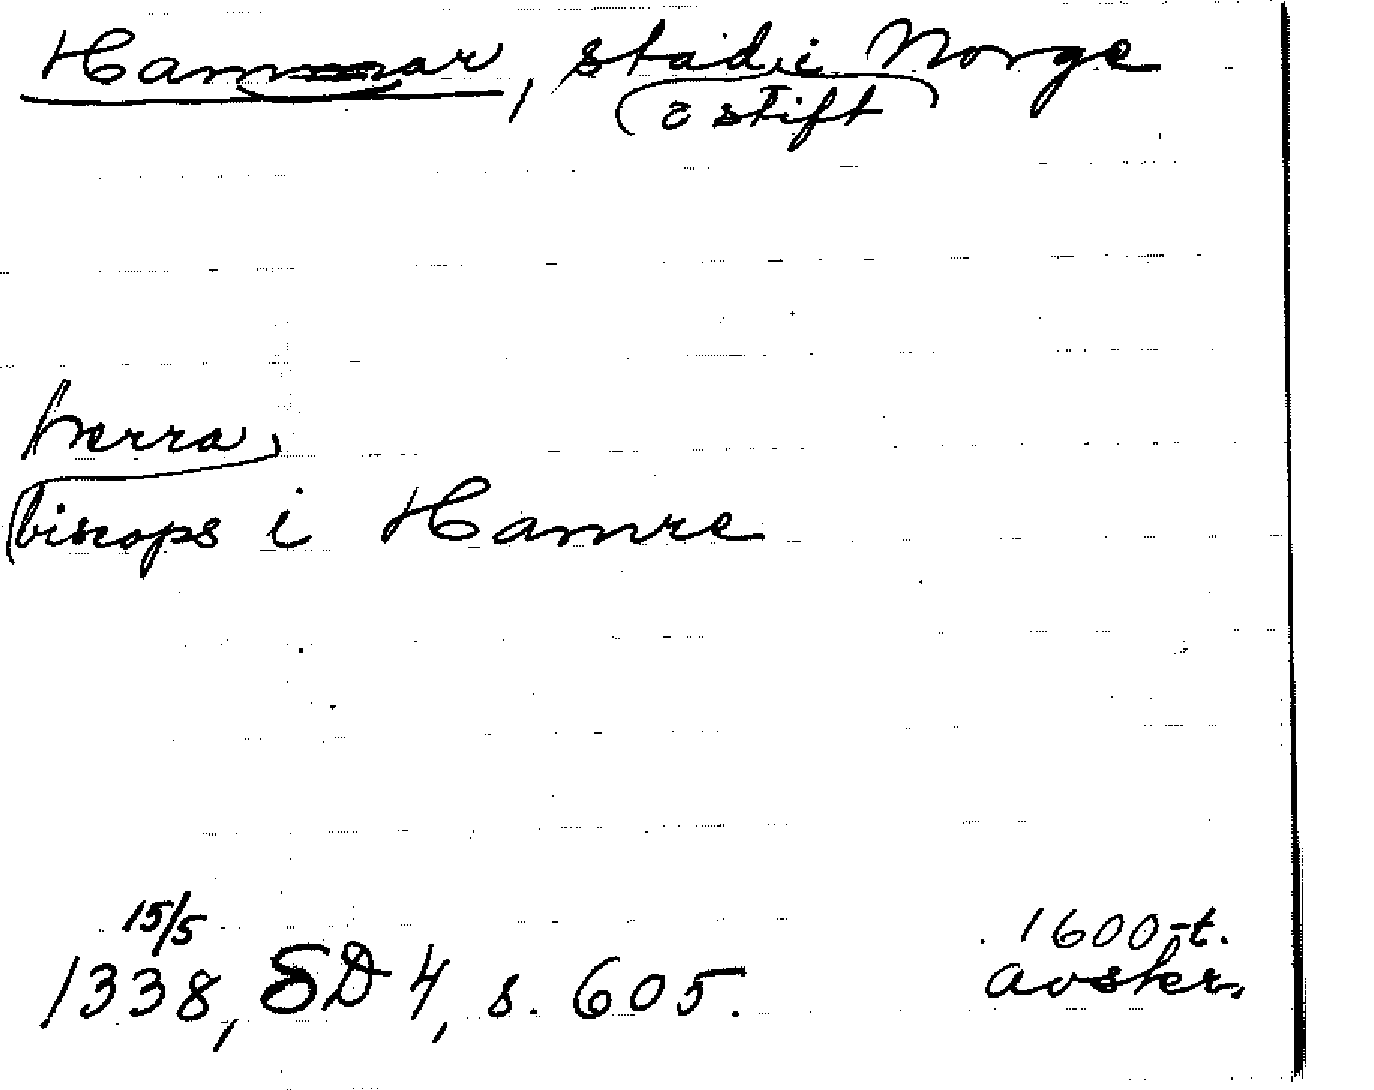 Hammar, stad i Norge
(o stift)
herra
(biscops i Hamre
15/5
1338, SD 4, s. 605.
1600-t.
avskr.